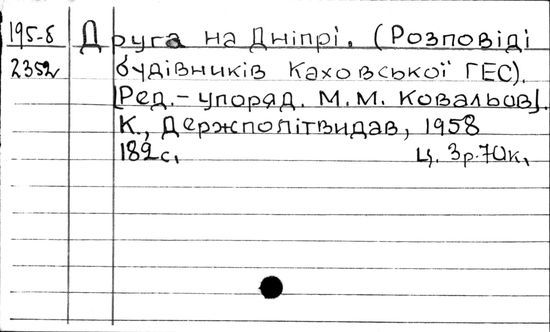 195-8 Друга на Дніпрі. (Розповіді
2352 будівників Каховської ГЕС).
[Ред.-упоряд. М.М. Ковальов].
К., Держполітвидав, 1958
182с. Ц. 3р.70к.